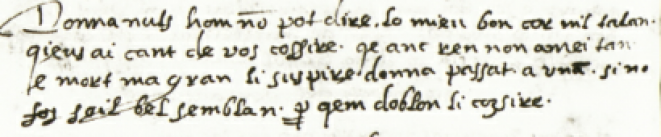 Donna nuls hom nō pot dire. lo mieu bon cor nil talan.
qieus ai cant de vos cossire. qe anc ren non amei tan
e mort ma gran li suspire. donna passat. a una. si no
fos seil bel semblan. ꝑ qem doblon li cozsire.